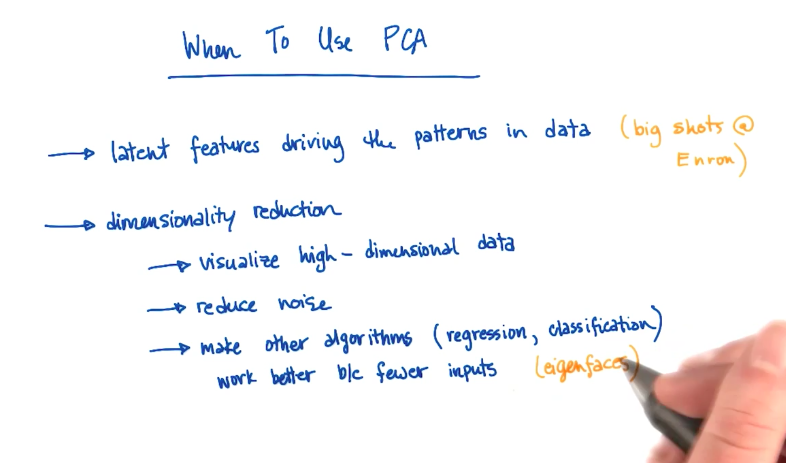 When To Use PCA
→ latent features driving the patterns in data (big shots @
Enron)
→ dimensionality reduction
→ visualize high-dimensional data
→ reduce noise
→ make other algorithms (regression, classification)
work better b/c fewer inputs (eigenfaces)